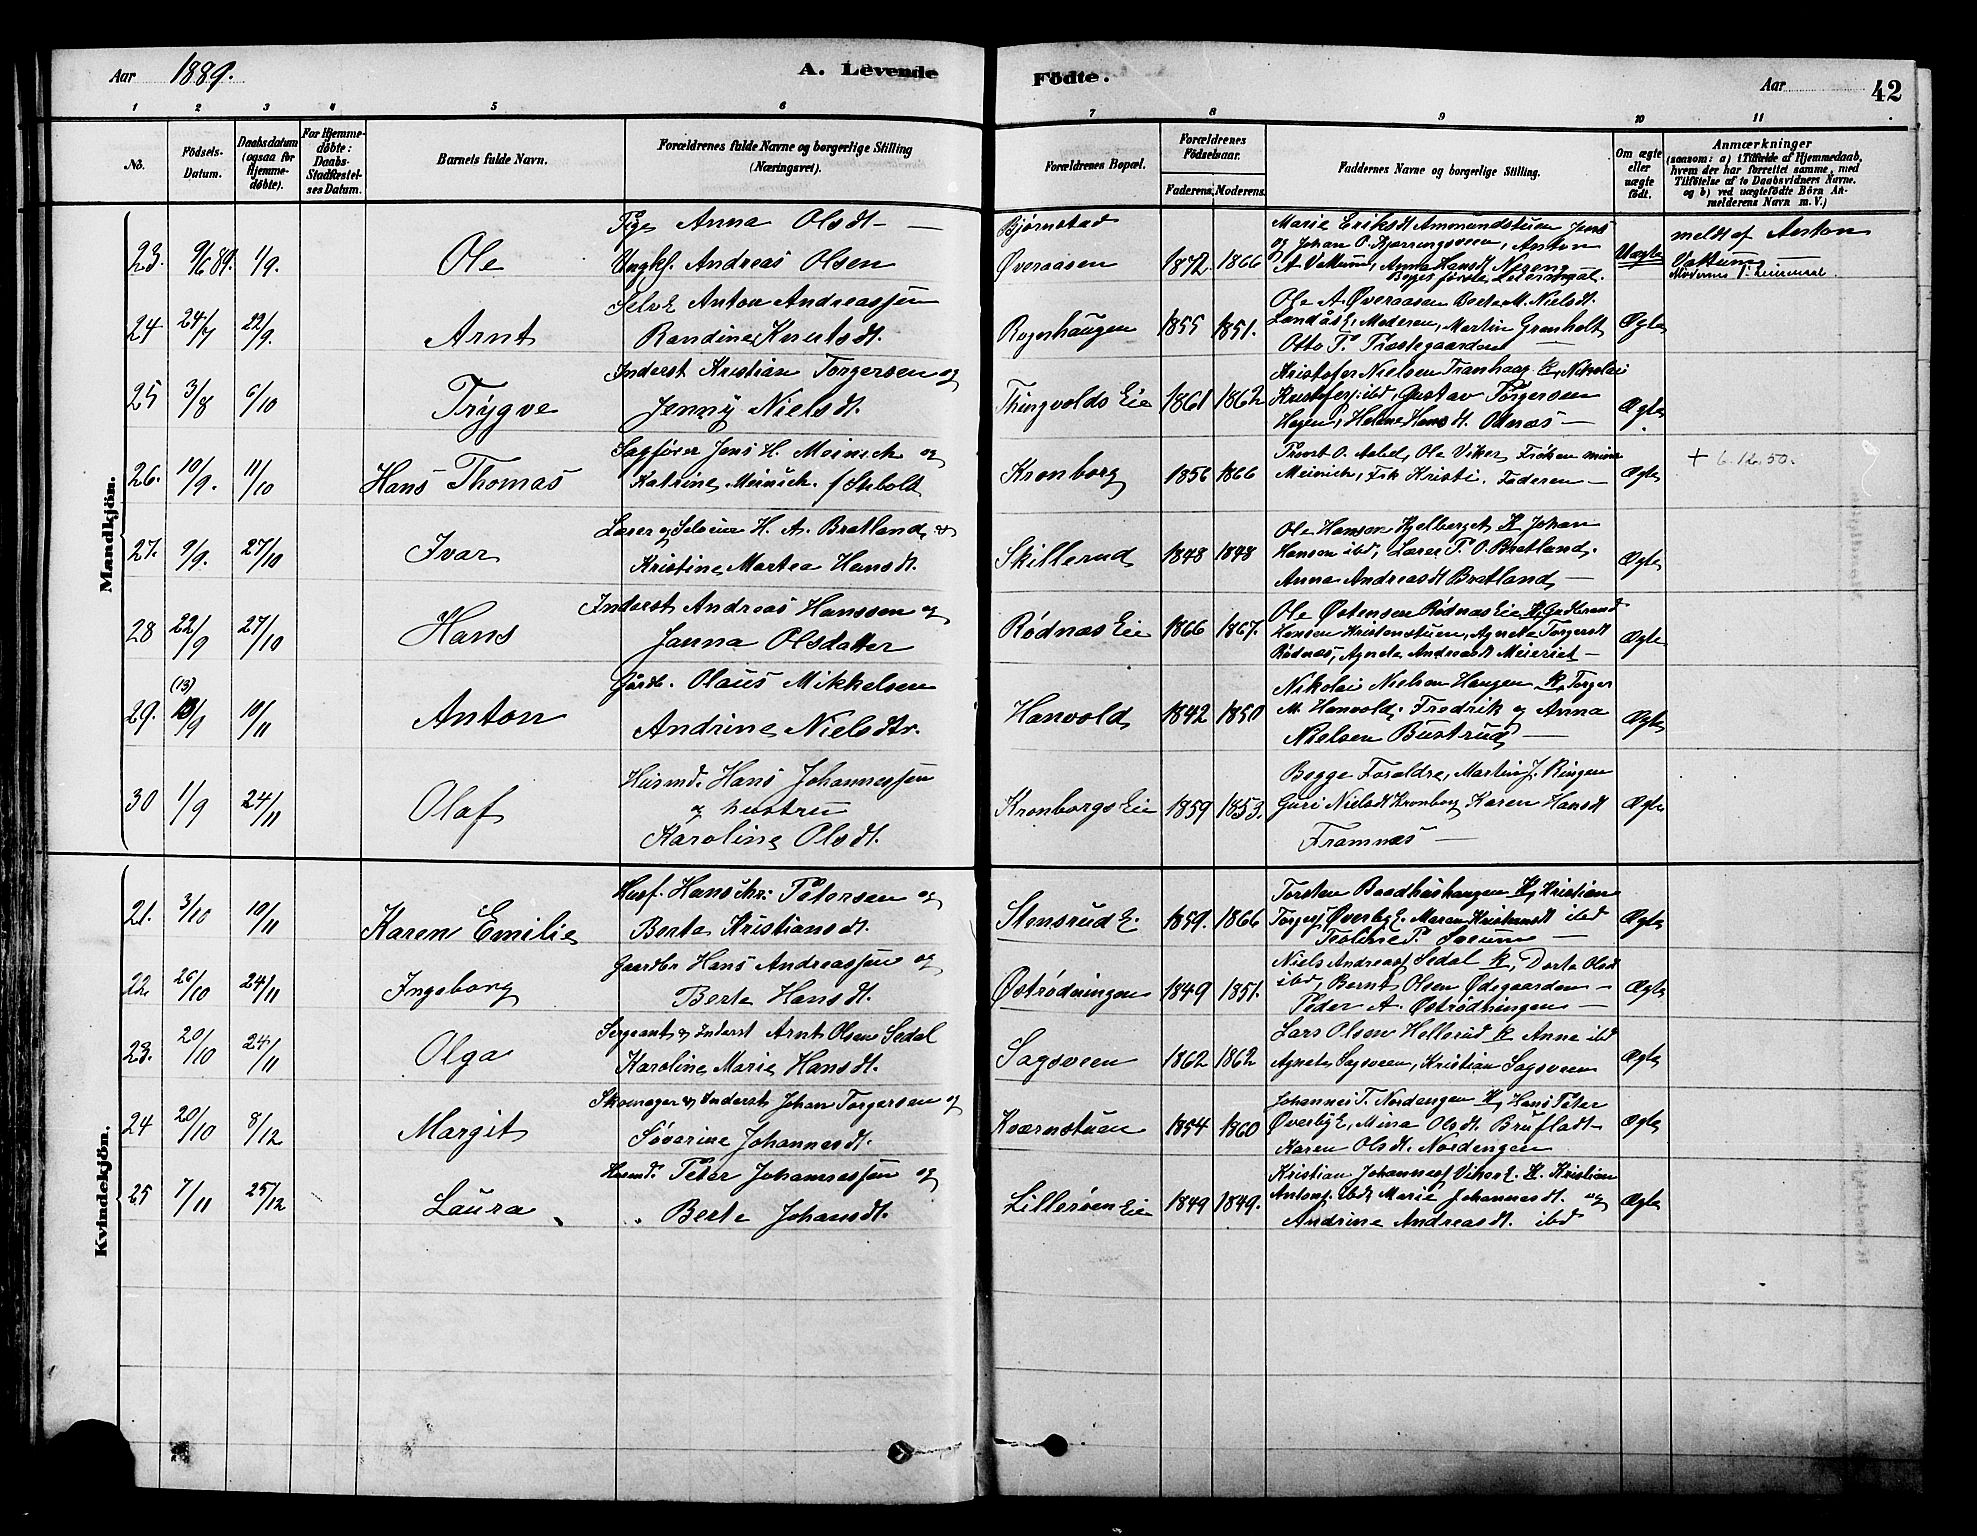 Aar 1889. A. Levende Födte. Aar 42
1 2 3 4 5 6 7 8 9 10 11
No. Födsels-Datum. Daabsdatum (ogsaa for Hjemmedöbte). For Hjemmedöbte: Daabs-Stadfæstelses Datum. Barnets fulde Navn. Forældrenes fulde Navne og borgerlige Stilling (Næringsvei). Forældrenes Bopæl. Forældrenes Födselsaar. Faderens. Moderens. Faddernes Navne og borgerlige Stilling. Om ægte eller uægte födt. Anmærkninger (saasom: a) i Tilfælde af Hjemmedaab, hvem der har forrettet samme, med Tilföielse af to Daabsvidners Navne, og b) ved uægtefödte Börn Anmelderens Navn m. V.)
Mandkjön.
Pige Anna Olsdt — Bjørnstad Marie Eriksdt Ammundstuen Jens
23. 9/6 89. 1/9. Ole Ungkf. Andreas Olsen Øveraasen 1872. 1866 og Johan O. Anton Uægte meldt af Anton
A Vattum, Anna Hansdt Vattum
Begges første Leiermaal. Moderens 1ste
Selve Anton Andreassen Ole A. Øveraasen Berte M. Nielsdt.
24 24/7 22/9. Arnt Randine Knutsdt. Rognhaugen 1855 1851. Landås E, Moderen, Martin Granholt Ægte
Otto P. Præstegaarden —
Inderst Kristian Torgersen og Kristofer Nielsen Tranhaug K, Nikolai
25 3/8 6/10 Trygve Jenny Nielsdt. Thingvolds Eie 1861 1862 Kristofersj: ibd, Gustav Torgersen Ægte.
Hagen, Helene Hansdt. Odnæs —
Sagfører Jens H. Meinich og Provst O. Aabel, Ole Viker, Frøken
26. 10/9. 11/10 Hans Thomas Katrine Meinich f Sebold Kronborg 1856 1866 Meinich, Frk Kristi. Faderen — Ægte + 6.12.50.
Lærer og Selveier H. A. Bratland, & Ole Hansen Hjelberget K Johan
27. 9/9. 27/10 Ivar Kristine Martea Hansdt. Skillerud 1848 1848 Hansen ibd, Lærer P. O. Bratland. Ægte
Anna Andreasdt Bratland —
Inderst Andreas Hanssen og Ole Østensen Rødnæs Eie K, Gudbrand
28 22/9 27/10 Hans Janna Olsdatter Rødnæs Eie 1866 1867. Hansen Kristenstuen, Agnete Torgersdt Ægte
Rødnæs, Agnete Andreasdt Meieriet —
(13) Gårdb. Olaus Mikkelsen Nikolai Nielsen Haugen K, Torger
29. 13/9 10/11 Anton Andrine Nielsdtr. Hanvold 1842 1850 M. Hanvold, Fredrik og Anna Ægte
Nielsen Bustrud —
Husmd. Hans Johannessen Begge Forældre, Martin J. Ringen
30 1/9 24/11 Olaf og hustru Kronborgs Eie 1859 1853. Guri Nielsdt Kronborg Karen Hansdt Ægte
Karoline Olsdt. Framnæs —
Kvindekjön.
Husf. Hans Chr. Petersen og Torsten Baadhushaugen K, Kristian
21. 3/10 10/11 Karen Emilie Berte Kristiansdt. Stensrud E. 1859. 1866 Torgersj Øverby E. Maren Kristiansdt ibd Ægte
P. Soeum —
Gaardbr Hans Andreassen og Niels Andreasj Sedal K, Dorte Olsdt
22. 26/10 24/11 Ingeborg Berte Hansdt. Østrødningen 1849 1851. ibd, Bernt Olsen Ødegaarden — Ægte
Peder A. Østrødningen —
Sergeant & Inderst Arnt Olsen Sedal Lars Olsen Hellerud K Anne ibd
23. 20/10 24/11 Olga Karoline Marie Hansdt. Sagsveen 1862 1862 Agnete Sagsveen, Kristian Sagsveen Ægte
Skomager & Inderst Johan Torgersen og Johannes T. Nordengen K, Hans Peter
24 20/10 8/12 Margit Søverine Johannesdt. Kværnstuen 1854 1860 Øverby E, Mina Olsdt. Brufladt — Ægte
Karen Olsdt. Nordengen
Husmd. Peter Johannessen og Kristian Johannesj Viker E. K. Kristian
25 7/11 25/12 Laura Berte Johansdt. Lillerøen Eie 1849 1849. Antonj. ibd, Marie Johannesdt. og Ægte
Andrine Andreasdt. ibd